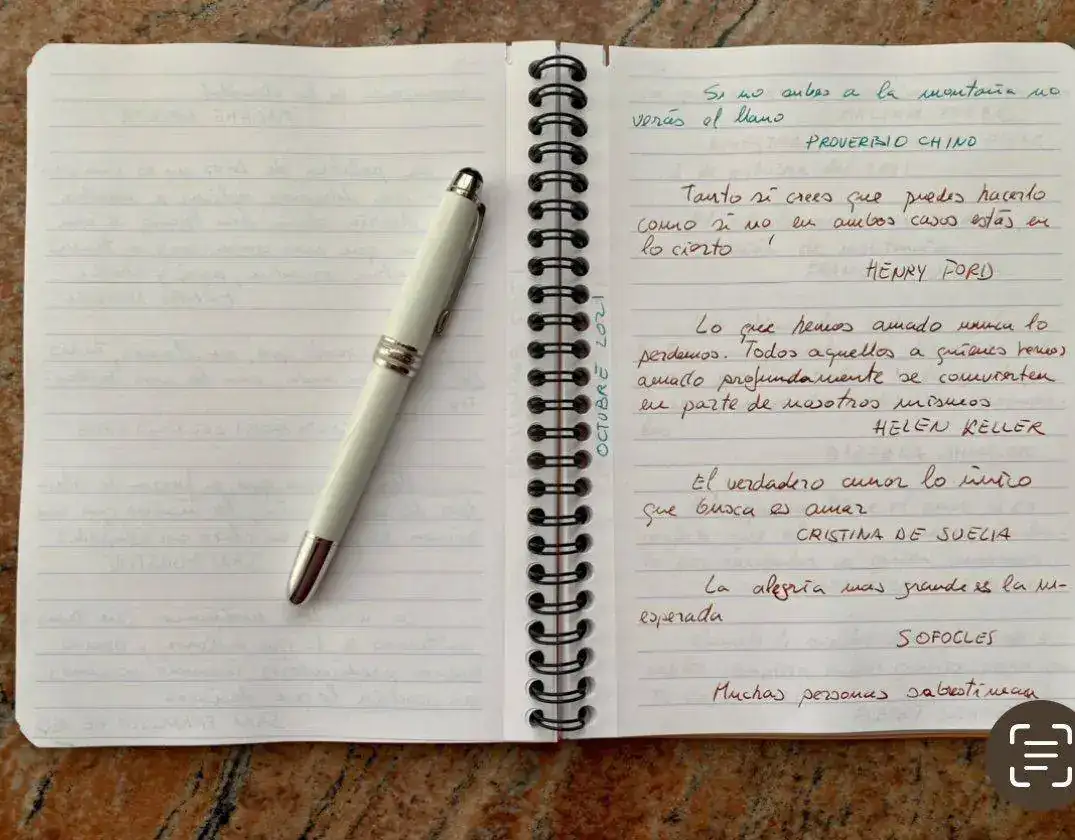 Si no subes a la montaña no
verás el llano
PROVERBIO CHINO
Tanto si crees que puedes hacerlo
como si no en ambos casos estás en
lo cierto
HENRY FORD
Lo que hemos amado nunca lo
perdemos. Todos aquellos a quienes hemos
amado profundamente se convierten
en parte de nosotros mismos
HELEN KELLER
El verdadero amor lo único
que busca es amar
CRISTINA DE SUECIA
La alegría mas grande es la in-
esperada
SOFOCLES
Muchas personas subestiman
OCTUBRE 2021